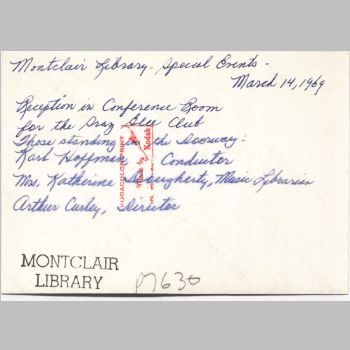 Montclair Library - Special Events -
March 14, 1969
Reception in Conference Room
for the Graz Glee Club
Those standing in the Doorway:
Karl Hoffmen, Conductor
Mrs. Katherine Dougherty, Music Librarian
Arthur Curley, Director
KODACOLOR PRINT
Made by Kodak
MONTCLAIR
LIBRARY
P7630